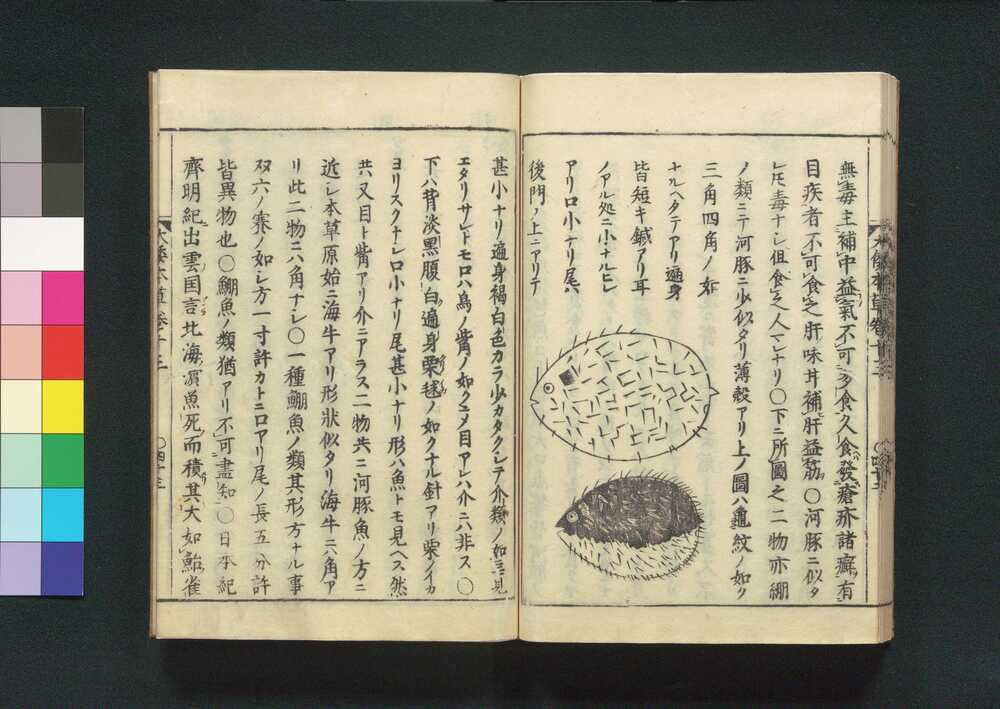 無毒主補中益氣不可多食久食發瘡疥諸癬有
目疾者不可食之肝味丼補肝益筋〇河豚ニ似タ
レ𪜈毒ナシ但食之人マレナリ〇下ニ所圖之二物亦綳
ノ類ニテ河豚ニ少似タリ薄殻アリ上ノ圖ハ龜紋ノ如ク
三角四角ノ如
ナルヘタテアリ遍身
皆短キ鍼アリ耳
ノアル処ニ小ナルヒレ
アリ口小ナリ尾ハ
後門ノ上ニアリテ
甚小ナリ遍身褐白色カラ少カタクシテ介類ノ如シ三見
エタリサレトモ口ハ鳥ノ觜ノ如クニメ目アレハ介ニハ非ス〇
下ハ背淡黒腹白遍身栗毬ノ如クナル針アリ柴ノイカ
ヨリスクナシ口小ナリ尾甚小ナリ形ハ魚トモ見ヘス然
共又目ト觜アリ介ニアラス二物共ニ河豚魚ノ方ニ
近シ本草原始ニ海牛アリ形狀似タリ海牛ニ六角ア
リ此二物ニ六角ナシ〇一種綳魚ノ類其形方ナル事
双六ノ賽ノ如シ方一寸許カトニ口アリ尾ノ長五分許
皆異物也〇綳魚ノ類猶アリ不可盡知〇日本紀
齊明紀出雲国言北海濵魚死而積其大如鮐雀
大倭本草卷十三
〇四十三